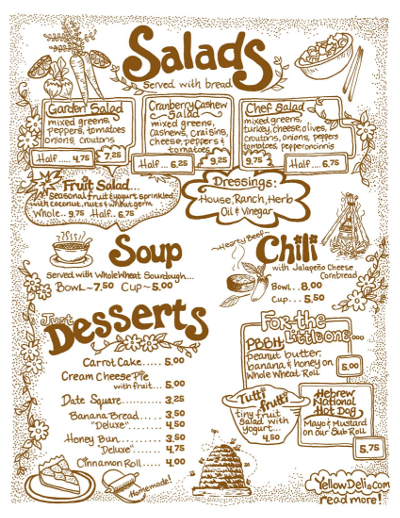 Salads
Served with bread
Garden Salad
mixed greens,
peppers, tomatoes
onions, croutons
Half ..... 4.75
7.25
Cranberry Cashew
Salad
mixed greens,
Cashews, Craisins,
cheese, peppers &
tomatoes
Half ... 6.25
9.25
Chef Salad
mixed greens,
turkey, cheese, olives,
croutons, onions, peppers
tomatoes, pepperoncinnis
9.75
Half .... 6.75
Fruit Salad...
Seasonal fruit & yogurt sprinkled
with coconut, nuts & wheat germ
Whole.. 9.75 Half.. 6.75
Dressings:
House, Ranch, Herb
Oil & Vinegar
Soup
Served with Whole Wheat Sourdough...
Bowl ~ 7.50 Cup ~ 5.00
Hearty Beef
Chili
with Jalapeño Cheese
Cornbread
Bowl... 8.00
Cup ... 5.50
Just
Desserts
Carrot Cake ..... 5.00
Cream Cheese Pie
with fruit... 5.00
Date Square ...... 3.25
Banana Bread .... 3.50
"Deluxe" ...... 4.50
Honey Bun ...... 3.50
"Deluxe" ...... 4.75
Cinnamon Roll .... 4.00
Homemade!
For the
Little one...
PBBH
peanut butter,
banana & honey on
Whole Wheat Roll
5.00
Tutti Frutti
tiny fruit
Salad with
yogurt...
4.50
Hebrew
National
Hot Dog
Mayo & Mustard
on our Sub Roll
5.75
YellowDeli.com
read more!